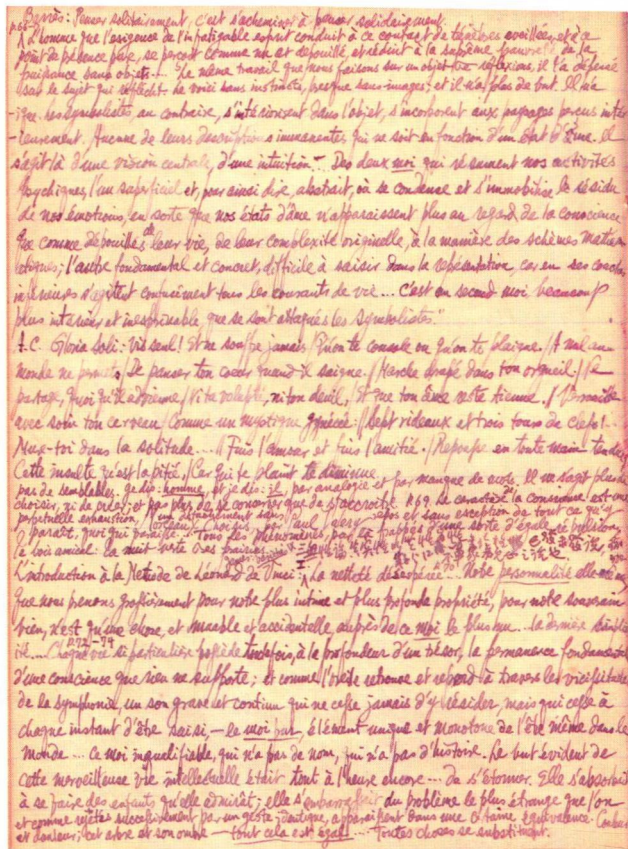 Barrès: Penser solitairement, c'est s'acheminer à penser solidairement.
L'homme que l'exigence de l'infatigable esprit conduit à ce contact de ténèbres éveillées, et à ce
point de présence pure, se perçoit comme nu et dépouillé, et réduit à la suprême pauvreté de la
puissance sans objet... Le même travail que nous faisons sur un objet de réflexions, il l'a dépensé
sur le sujet qui réfléchit. Le voici sans instincts, presque sans images; et il n'a plus de but. Il n'a
-ique. Les symbolistes, au contraire, s'intériorisent dans l'objet, s'incorporent aux paysages perçus inté
-rieurement. Aucune de leurs descriptions immanentes qui ne soit en fonction d'un état d'âme. Il
s'agit là d'une vision centrale, d'une intuition... Des deux moi qui résument nos activités
psychiques, l'un superficiel et, pour ainsi dire, abstrait, où se condense et s'immobilise le résidu
de nos émotions, en sorte que nos états d'âme n'apparaissent plus au regard de la conscience
que comme dépouillés de leur vie, de leur complexité originelle, à la manière des schèmes mathém
atiques; l'autre fondamental et concret, difficile à saisir dans la représentation, car en ses couches
inférieures s'agitent confusément tous les courants de vie... C'est au second moi, beaucoup
plus intérieur et inexprimable que se sont attaqués les symbolistes."
A.C. Gloria soli: Vis seul! Et ne souffre jamais/Qu'on te console ou qu'on te plaigne./A nul au
monde ne permets/De panser ton coeur quand il saigne./Marche drapé dans ton orgueil;/Ne
partage, quoi qu'il advienne/Ni ta volupté, ni ton deuil,/Et que ton âme reste tienne./Verrouille
avec soin ton cerveau/Comme un mystique gynécée:/Sept rideaux et trois tours de clefs!
Mure-toi dans la solitude...//Fuis l'amour et fuis l'amitié./Repousse en toute main tendue
Cette insulte qu'est la pitié,/Car qui te plaint te diminue.
pas de semblables. Je dis: homme, et je dis: il, par analogie et par manque de mots. Il ne s'agit plus de
choisir, ni de créer; et pas plus de se conserver que de s'accroître. Le caractère de la conscience est une
perpetuelle exhaustion, un détachement sans repos et sans exception de tout ce qu'y
paraît, quoi qui paraisse. Tous les phénomènes, par là frappés d'une sorte d'égale répulsion,
L'introduction à la Méthode de Léonard de Vinci: La netteté désespérée... Notre personnalité elle-même
que nous prenons grossièrement pour notre plus intime et plus profonde propriété, pour notre souverain
bien, n'est qu'une chose, et muable et accidentelle, auprès de ce moi le plus nu... la dernière simplic
ité.... Chaque vie si particulière possède toutefois, à la profondeur d'un trésor, la permanence fondamentale
d'une conscience que rien ne supporte; et comme l'oreille retrouve et reperd à travers les vicissitudes
de la symphonie, un son grave et continu qui ne cesse jamais d'y résider, mais qui cesse à
chaque instant d'être saisi, - le moi pur, élément unique et monotone de l'être même dans le
monde... Ce moi inqualifiable, qui n'a pas de nom, qui n'a pas d'histoire. Le but évident de
cette merveilleuse vie intellectuelle était tout à l'heure encore... de s'étonner. Elle s'absorbait
à se faire des enfants qu'elle admirât; elle s'embarrassait du problème le plus étrange que l'on
et comme rejetés successivement par un geste identique, apparaissent dans une certaine équivalence.
et douleur; cet arbre et son ombre - tout cela est égal... Toutes choses se substituent.